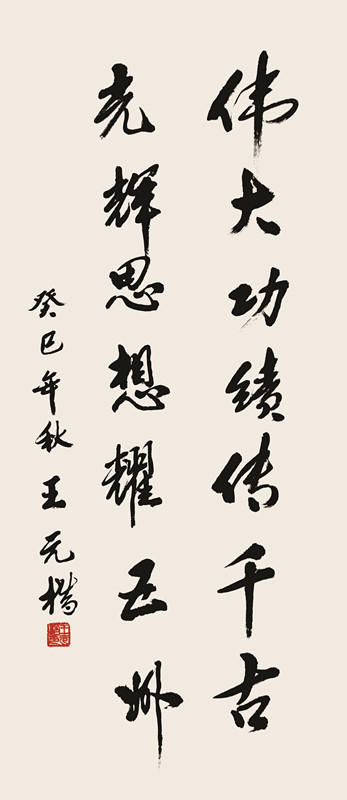 伟大功绩传千古
光辉思想耀五州
癸巳年秋王元楷